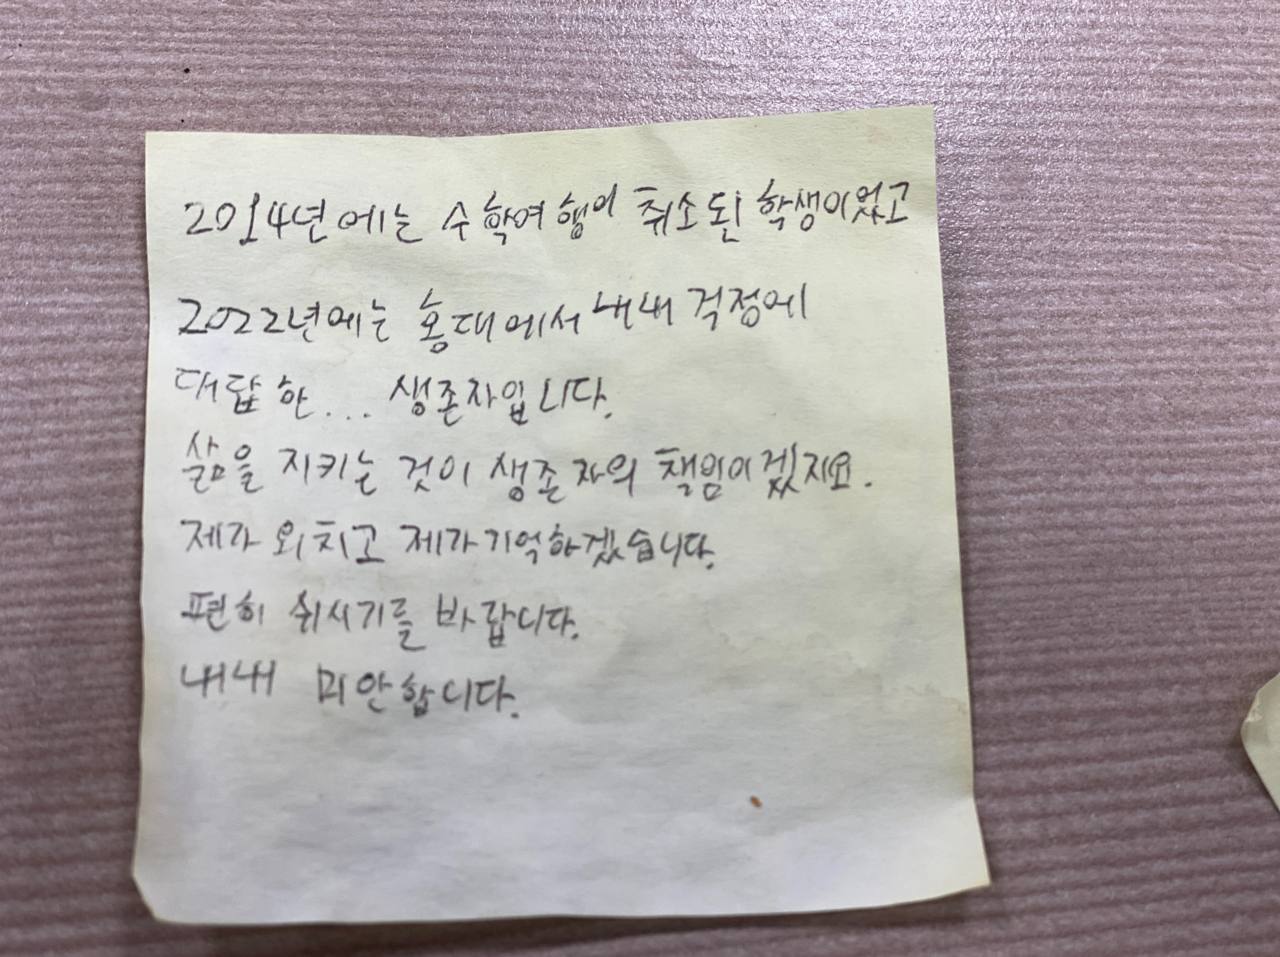 2014년에는 수학여행이 취소된 학생이었고
2022년에는 홍대에서 내내 걱정에
대답한... 생존자입니다.
삶을 지키는 것이 생존자의 책임이겠지요.
제가 외치고 제가 기억하겠습니다.
편히 쉬시기를 바랍니다.
내내 미안합니다.